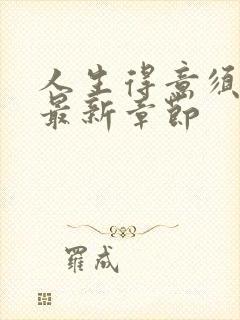 人生得意须
最新章節
羅成